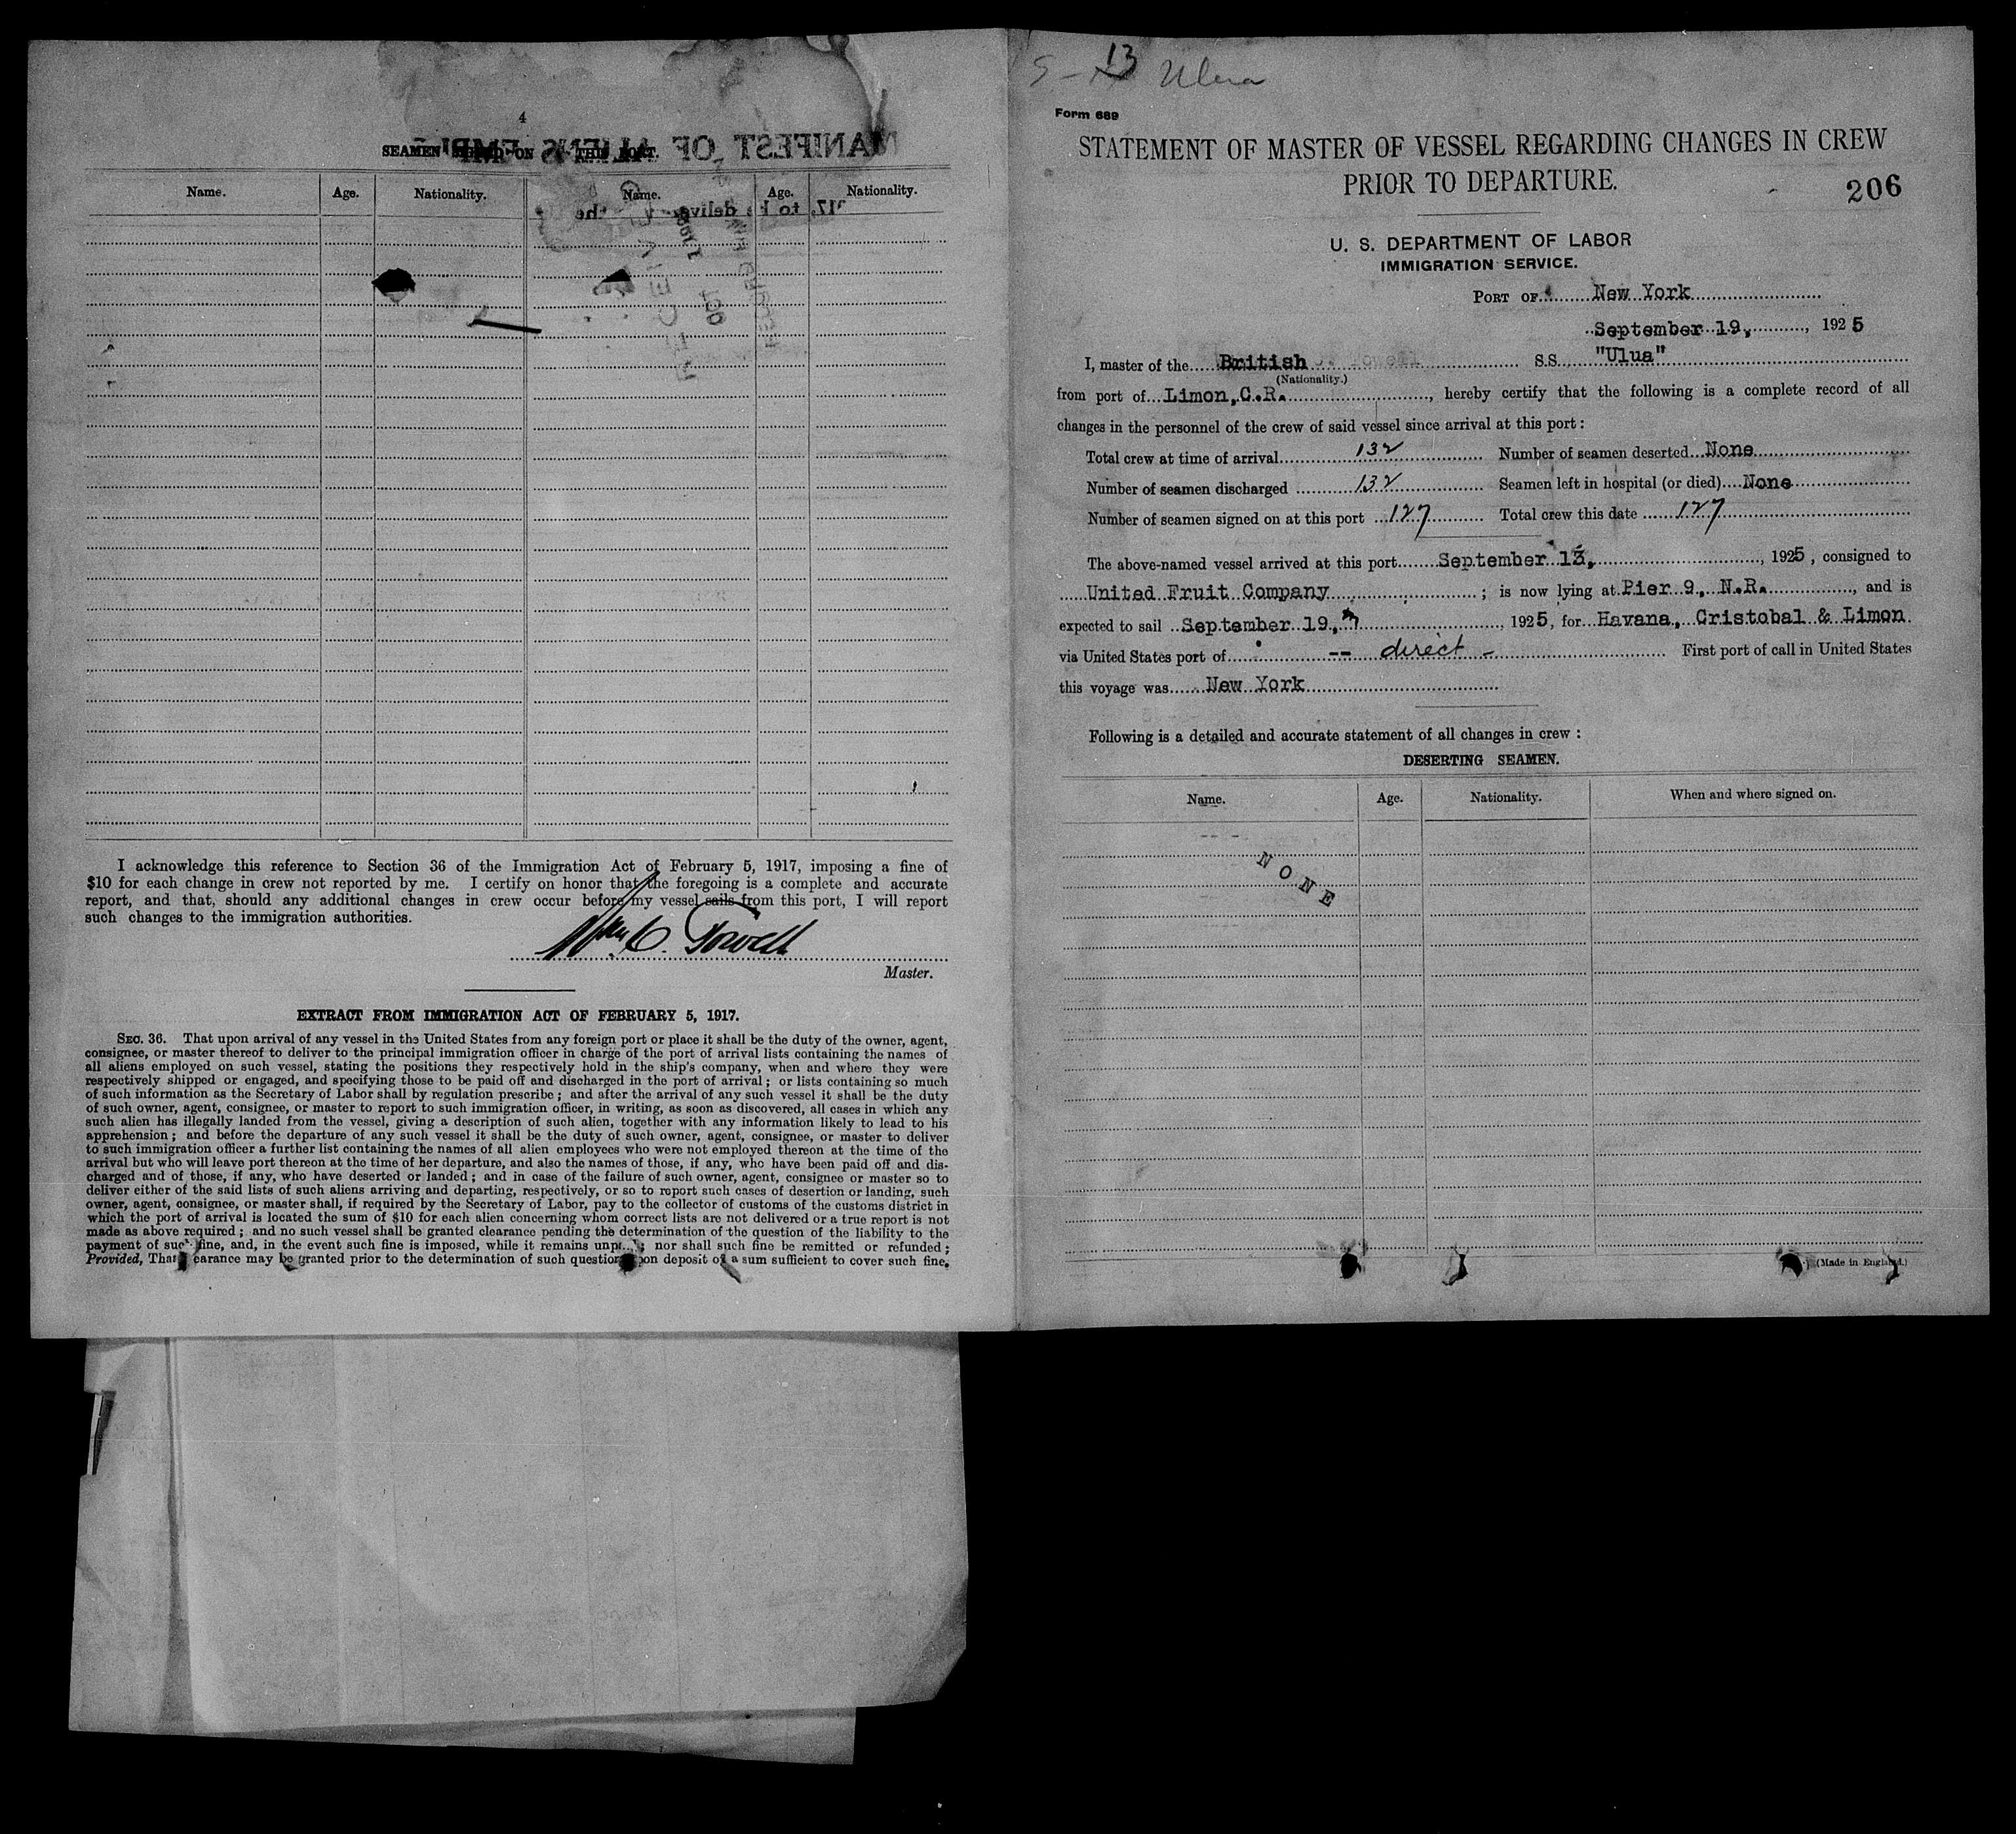 4
SEAMEN SIGNED ON AT THIS PORT.
Name. Age. Nationality. Name. Age. Nationality.
I acknowledge this reference to Section 36 of the Immigration Act of February 5, 1917, imposing a fine of
$10 for each change in crew not reported by me. I certify on honor that the foregoing is a complete and accurate
report, and that, should any additional changes in crew occur before my vessel sails from this port, I will report
such changes to the immigration authorities.
Wm C. Towell
Master.
EXTRACT FROM IMMIGRATION ACT OF FEBRUARY 5, 1917.
SEC. 36. That upon arrival of any vessel in the United States from any foreign port or place it shall be the duty of the owner, agent,
consignee, or master thereof to deliver to the principal immigration officer in charge of the port of arrival lists containing the names of
all aliens employed on such vessel, stating the positions they respectively hold in the ship's company, when and where they were
respectively shipped or engaged, and specifying those to be paid off and discharged in the port of arrival; or lists containing so much
of such information as the Secretary of Labor shall by regulation prescribe; and after the arrival of any such vessel it shall be the duty
of such owner, agent, consignee, or master to report to such immigration officer, in writing, as soon as discovered, all cases in which any
such alien has illegally landed from the vessel, giving a description of such alien, together with any information likely to lead to his
apprehension; and before the departure of any such vessel it shall be the duty of such owner, agent, consignee, or master to deliver
to such immigration officer a further list containing the names of all alien employees who were not employed thereon at the time of the
arrival but who will leave port thereon at the time of her departure, and also the names of those, if any, who have been paid off and dis-
charged and of those, if any, who have deserted or landed; and in case of the failure of such owner, agent, consignee or master so to
deliver either of the said lists of such aliens arriving and departing, respectively, or so to report such cases of desertion or landing, such
owner, agent, consignee, or master shall, if required by the Secretary of Labor, pay to the collector of customs of the customs district in
which the port of arrival is located the sum of $10 for each alien concerning whom correct lists are not delivered or a true report is not
made as above required; and no such vessel shall be granted clearance pending the determination of the question of the liability to the
payment of such fine, and, in the event such fine is imposed, while it remains unpaid; nor shall such fine be remitted or refunded;
Provided, That clearance may be granted prior to the determination of such question upon deposit of a sum sufficient to cover such fine.
13 Ulua
Form 689
STATEMENT OF MASTER OF VESSEL REGARDING CHANGES IN CREW
PRIOR TO DEPARTURE.
206
U. S. DEPARTMENT OF LABOR
IMMIGRATION SERVICE.
PORT OF New York
September 19, , 1925
I, master of the British S.S. "Ulua"
(Nationality.)
from port of Limon, C.R. , hereby certify that the following is a complete record of all
changes in the personnel of the crew of said vessel since arrival at this port:
Total crew at time of arrival 132 Number of seamen deserted None
Number of seamen discharged 132 Seamen left in hospital (or died) None
Number of seamen signed on at this port 127 Total crew this date 127
The above-named vessel arrived at this port September 13, , 1925, consigned to
United Fruit Company ; is now lying at Pier 9, N.R. , and is
expected to sail September 19, , 1925, for Havana, Cristobal & Limon
via United States port of -- direct - First port of call in United States
this voyage was New York
Following is a detailed and accurate statement of all changes in crew:
DESERTING SEAMEN.
Name. Age. Nationality. When and where signed on.
NONE
(Made in England.)